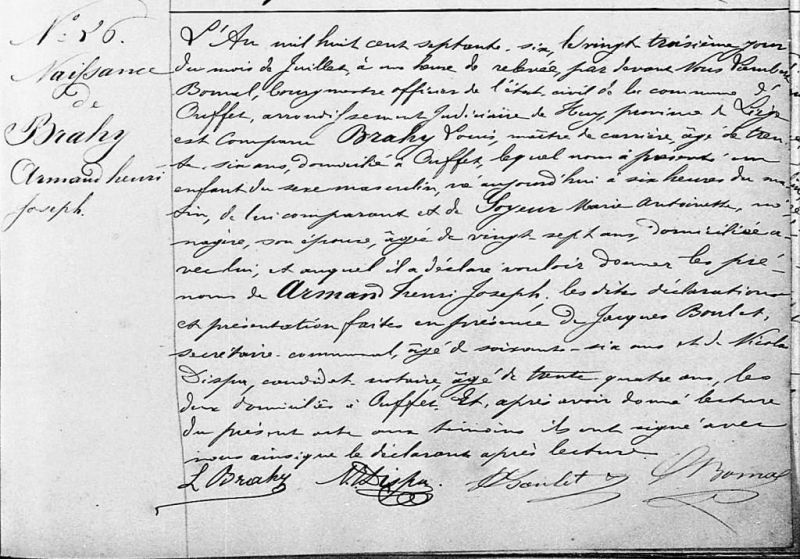 N° 26.
Naissance
de
Brahy
Armand henri
Joseph.
L'An mil huit cent septante-six, le vingt troisième jour
du mois de Juillet, à une heure de relevée, par devant Nous
Bonal, bourgmestre officier de l'état civil de la commune d'
Ouffet, arrondissement judiciaire de Huy, province de Liège
est comparu Brahy Louis, maître de carrière, âgé de tren-
te-six ans, domicilié à Ouffet, lequel nous a présenté un
enfant du sexe masculin, né aujourd'hui à six heures du ma-
tin, de lui comparant et de Soyeur Marie Antoinette, mé-
nagère, son épouse, âgée de vingt sept ans, domiciliée a-
vec lui, et auquel il a déclaré vouloir donner les pré-
noms de Armand henri Joseph. les dites déclarations
et présentation faites en présence de Jacques Boulet,
secrétaire communal, âgé de soixante-six ans et de Nicolas
Dispa, candidat notaire, âgé de trente-quatre ans, les
deux domiciliés à Ouffet. Et, après avoir donné lecture
du présent acte aux témoins ils ont signé avec
nous ainsi que le déclarant après lecture
L Brahy N Dispa. Boulet Bonal